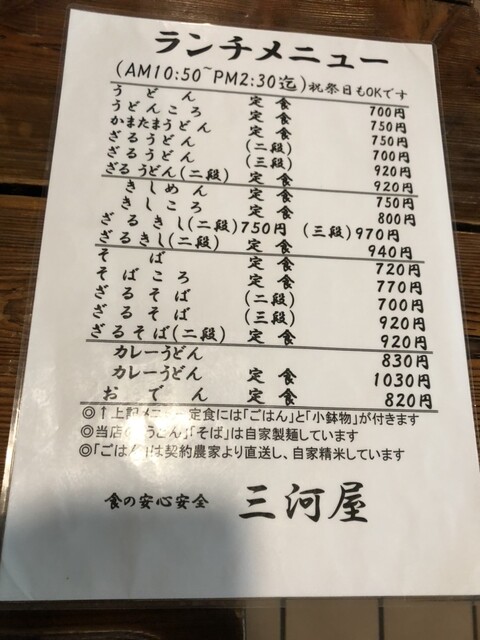 ランチメニュー
(AM10:50~PM2:30迄)祝祭日もOKです
うどん 定食 700円
うどんころ 定食 750円
かまたまうどん 定食 750円
ざるうどん (二段) 700円
ざるうどん (三段) 920円
ざるうどん(二段) 定食 920円
きしめん 定食 750円
きしころ 定食 800円
ざるきし(二段)750円 (三段)970円
ざるきし(二段) 定食 940円
そば 定食 720円
そばころ 定食 770円
ざるそば (二段) 700円
ざるそば (三段) 920円
ざるそば(二段) 定食 920円
カレーうどん 830円
カレーうどん 定食 1030円
おでん 定食 820円
◎↑上記メニュー定食には「ごはん」と「小鉢物」が付きます
◎当店の「うどん」「そば」は自家製麺しています
◎「ごはん」は契約農家より直送し、自家精米しています
食の安心安全 三河屋